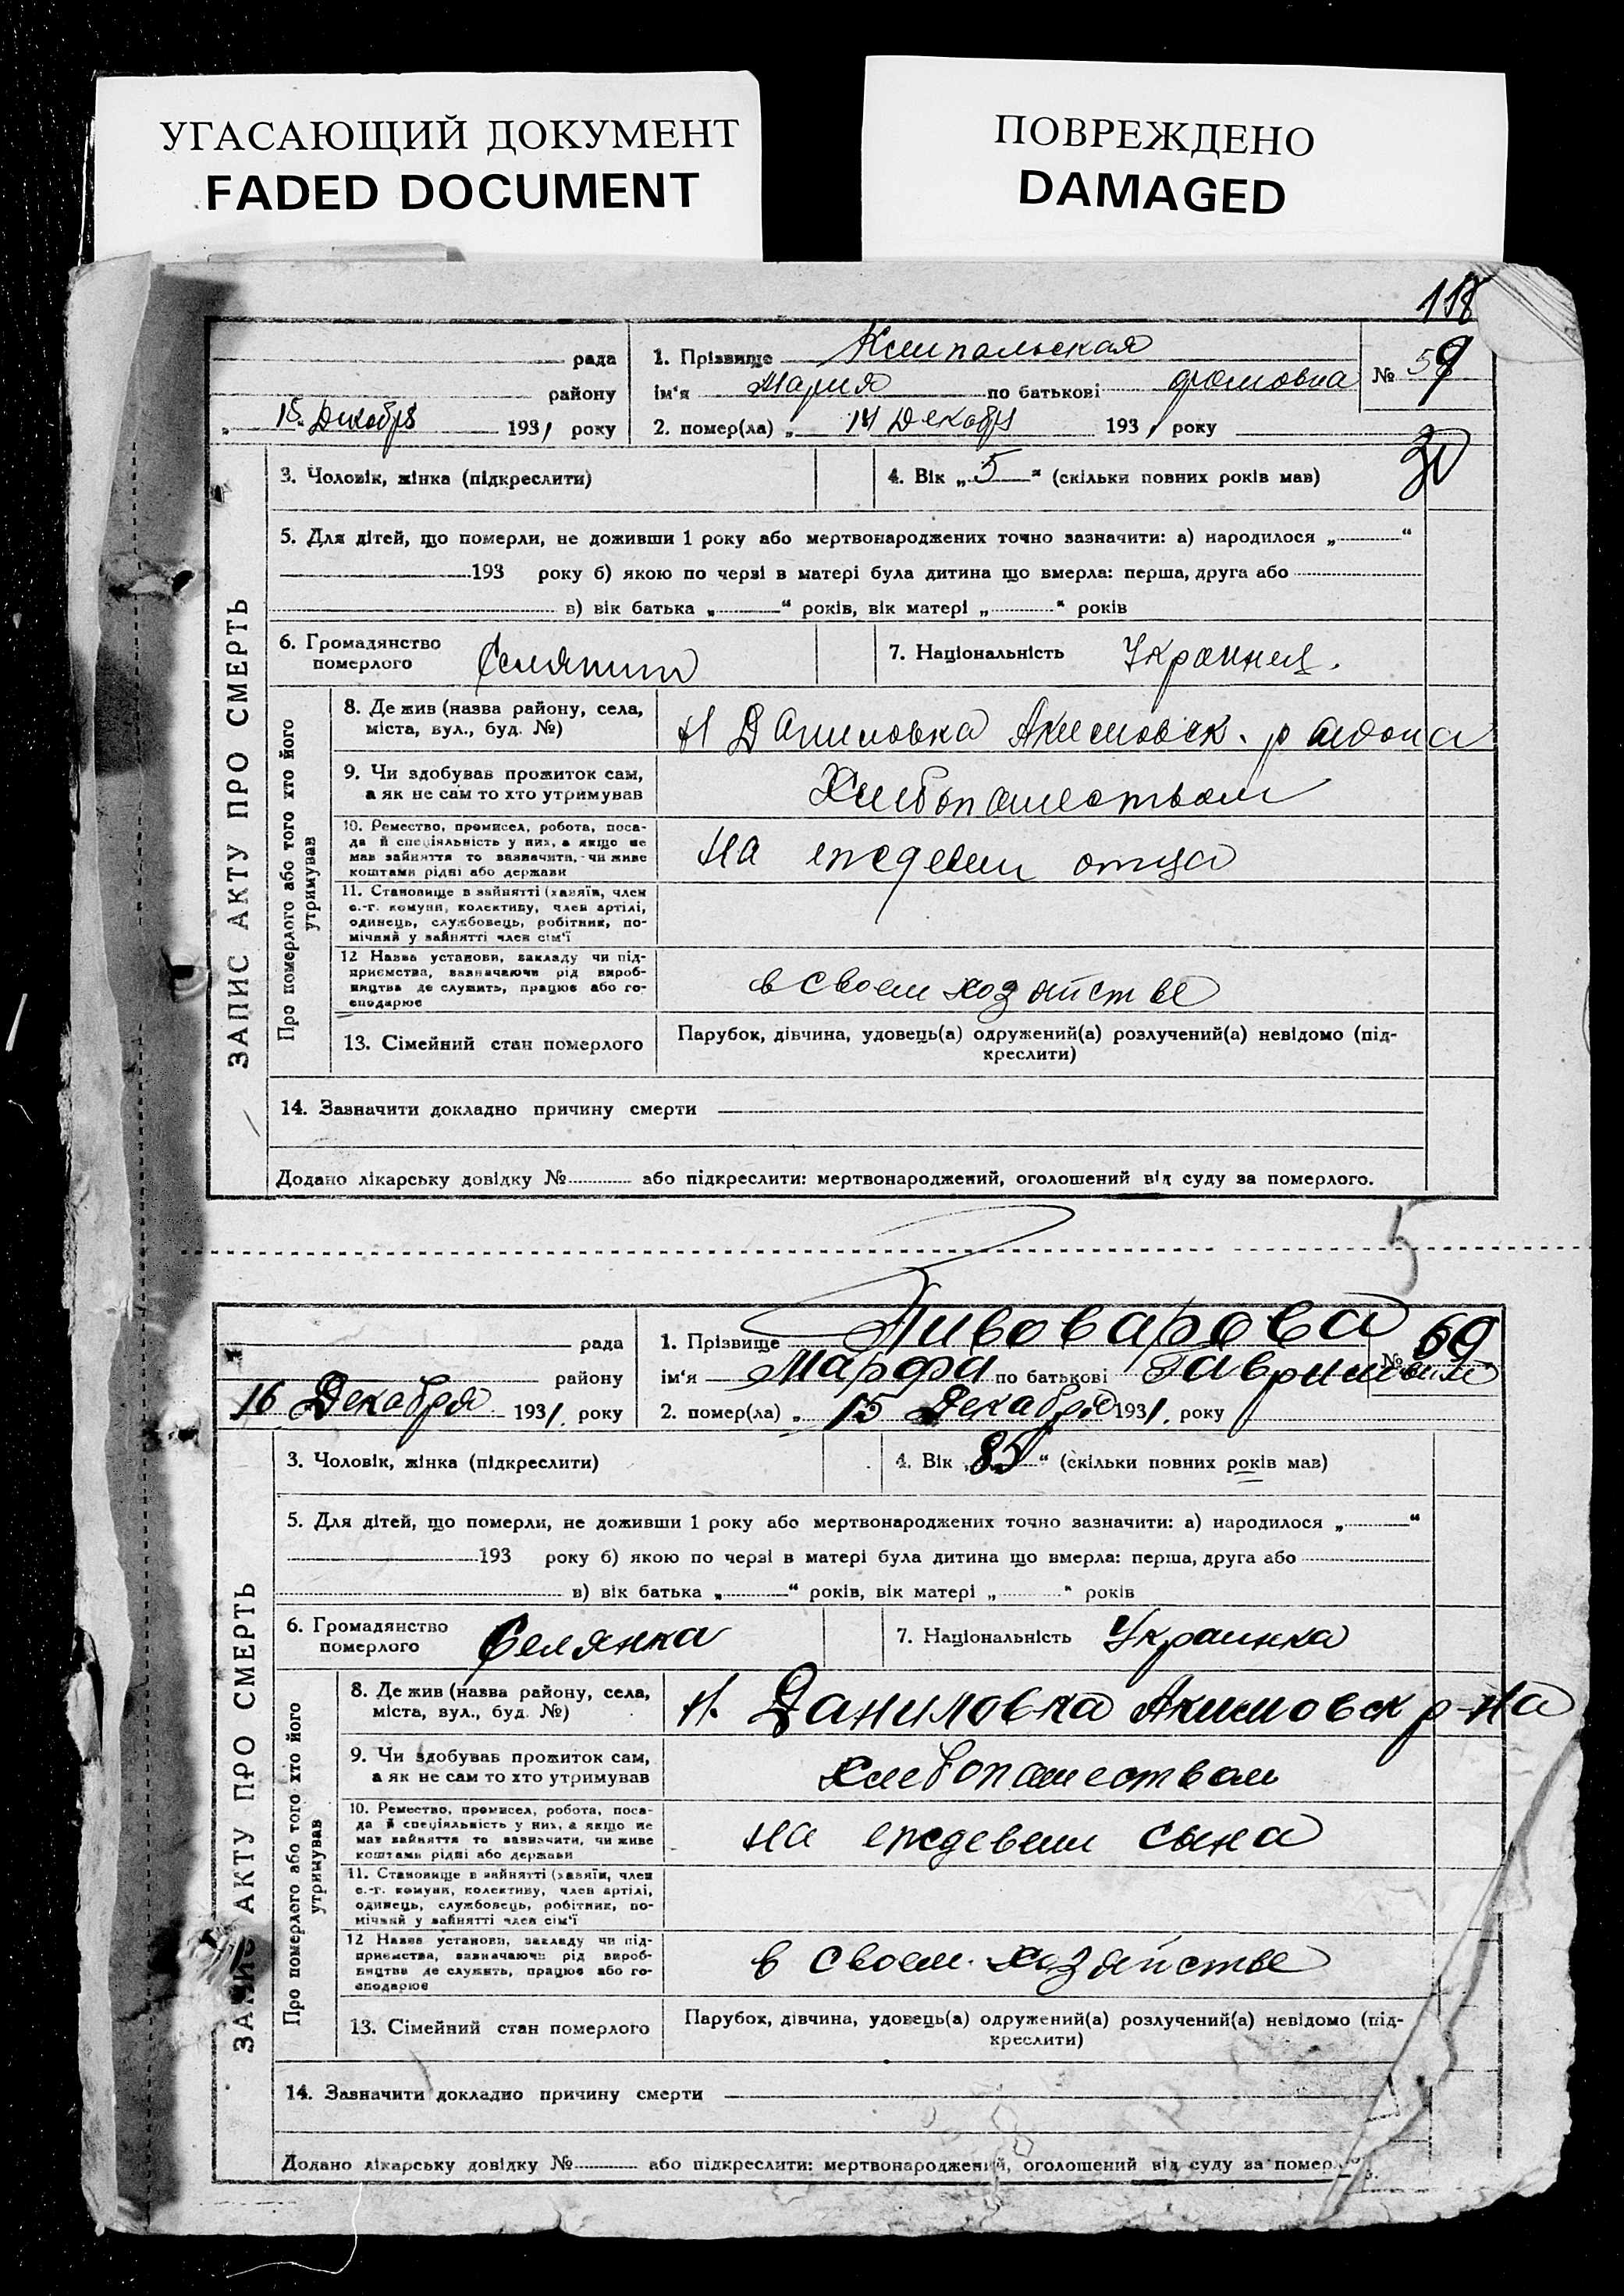 УГАСАЮЩИЙ ДОКУМЕНТ
FADED DOCUMENT
ПОВРЕЖДЕНО
DAMAGED
118
рада
району
15 Декабря 1931 року
1. Прізвище
ім'я Мария по батькові
№ 59
2. помер(ла) „ 14 Декабря 1931 року
30
ЗАПИС АКТУ ПРО СМЕРТЬ
3. Чоловік, жінка (підкреслити)
4. Вік „5“ (скільки повних років мав)
5. Для дітей, що померли, не доживши 1 року або мертвонароджених точно зазначити: а) народилося „ “
193 року б) якою по черзі в матері була дитина що вмерла: перша, друга або
в) вік батька „ “ років, вік матері „ “ років
6. Громадянство померлого Селянин
7. Національність Украинец.
Про померлого або того хто його утримував
8. Де жив (назва району, села,
міста, вул., буд. №)
Н Даниловка Акимовск. района
9. Чи здобував прожиток сам,
а як не сам то хто утримував
Хлебопашеством
10. Ремество, промисел, робота, поса-
да й спеціяльність у них, а якщо не
мав зайняття то зазначити, чи живе
коштами рідні або держави
на иждевеи отца
11. Становище в зайнятті (хазяїн, член
с.-г. комуни, колективу, член артілі,
одинець, службовець, робітник, по-
мічний у зайнятті член сім'ї
12 Назва установи, закладу чи під-
приємства, зазначаючи рід вироб-
ництва де служить, працює або го-
сподарює
в своем хозяйстве
13. Сімейний стан померлого
Парубок, дівчина, удовець(а) одружений(а) розлучений(а) невідомо (під-
креслити)
14. Зазначити докладно причину смерти
Додано лікарську довідку № або підкреслити: мертвонароджений, оголошений від суду за померлого.
5
рада
району
16 Декабря 1931. року
1. Прізвище Пивоварова
ім'я Марфа по батькові Гавриловна
№ 60
2. помер(ла) „ 15 Декабря 1931. року
ЗАПИС АКТУ ПРО СМЕРТЬ
3. Чоловік, жінка (підкреслити)
4. Вік „85“ (скільки повних років мав)
5. Для дітей, що померли, не доживши 1 року або мертвонароджених точно зазначити: а) народилося „ “
193 року б) якою по черзі в матері була дитина що вмерла: перша, друга або
в) вік батька „ “ років, вік матері „ “ років
6. Громадянство померлого Селянка
7. Національність Украинка
Про померлого або того хто його утримував
8. Де жив (назва району, села,
міста, вул., буд. №)
Н. Даниловка Акимовск р-на
9. Чи здобував прожиток сам,
а як не сам то хто утримував
хлебопашеством
10. Ремество, промисел, робота, поса-
да й спеціяльність у них, а якщо не
мав зайняття то зазначити, чи живе
коштами рідні або держави
на иждевеи сына
11. Становище в зайнятті (хазяїн, член
с.-г. комуни, колективу, член артілі,
одинець, службовець, робітник, по-
мічний у зайнятті член сім'ї
12 Назва установи, закладу чи під-
приємства, зазначаючи рід вироб-
ництва де служить, працює або го-
сподарює
в своем хозяйстве
13. Сімейний стан померлого
Парубок, дівчина, удовець(а) одружений(а) розлучений(а) невідомо (під-
креслити)
14. Зазначити докладно причину смерти
Додано лікарську довідку № або підкреслити: мертвонароджений, оголошений від суду за помер